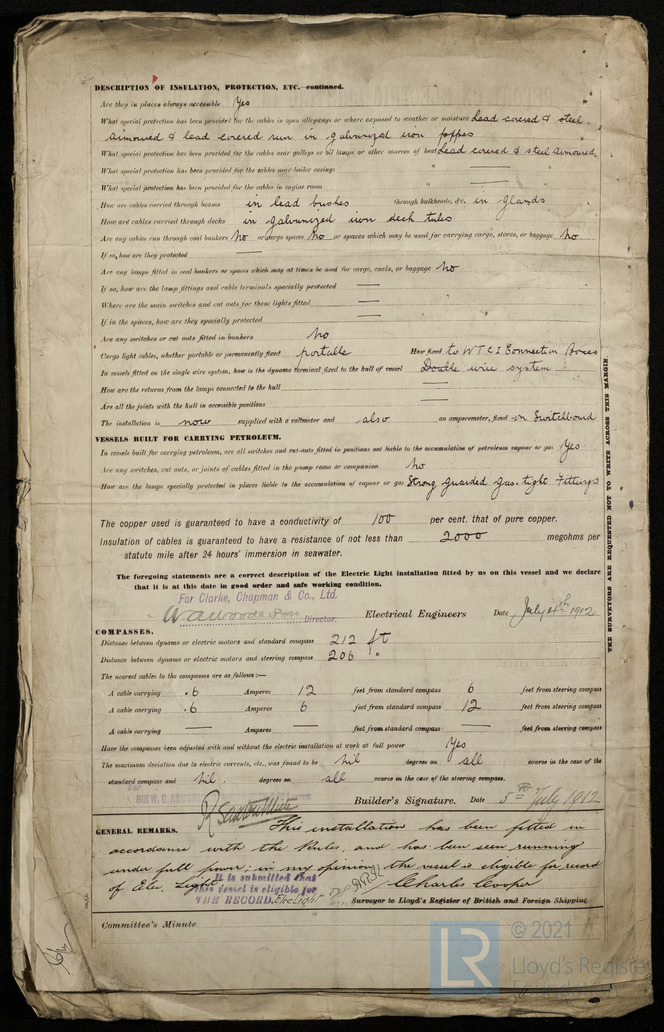 DESCRIPTION OF INSULATION, PROTECTION, ETC.—continued.
Are they in places always accessible Yes
What special protection has been provided for the cables in open alleyways or where exposed to weather or moisture Lead covered & steel
armoured & lead covered run in galvanized iron
What special protection has been provided for the cables near galleys or oil lamps or other sources of heat Lead covered & steel armoured.
What special protection has been provided for the cables near boiler casings "
What special protection has been provided for the cables in engine room "
How are cables carried through beams in lead bushes through bulkheads, &c. in glands
How are cables carried through decks in galvanized iron deck tubes
Are any cables run through coal bunkers No or cargo spaces No or spaces which may be used for carrying cargo, stores, or baggage No
If so, how are they protected —
Are any lamps fitted in coal bunkers or spaces which may at times be used for cargo, coals, or baggage No
If so, how are the lamp fittings and cable terminals specially protected —
Where are the main switches and cut outs for these lights fitted —
If in the spaces, how are they specially protected —
Are any switches or cut outs fitted in bunkers No
Cargo light cables, whether portable or permanently fixed portable How fixed to W T C I Connection Boxes
In vessels fitted on the single wire system, how is the dynamo terminal fixed to the hull of vessel Double wire system
How are the returns from the lamps connected to the hull —
Are all the joints with the hull in accessible positions —
The installation is now supplied with a voltmeter and also an amperemeter, fixed on Switchboard
VESSELS BUILT FOR CARRYING PETROLEUM.
In vessels built for carrying petroleum, are all switches and cut-outs fitted in positions not liable to the accumulation of petroleum vapour or gas Yes
Are any switches, cut outs, or joints of cables fitted in the pump room or companion No
How are the lamps specially protected in places liable to the accumulation of vapour or gas Strong guarded gas tight Fittings
The copper used is guaranteed to have a conductivity of 100 per cent. that of pure copper.
Insulation of cables is guaranteed to have a resistance of not less than 2000 megohms per
statute mile after 24 hours' immersion in seawater.
The foregoing statements are a correct description of the Electric Light installation fitted by us on this vessel and we declare
that it is at this date in good order and safe working condition.
For Clarke, Chapman & Co., Ltd.
Director. Electrical Engineers Date July 4th 1912
COMPASSES.
Distance between dynamo or electric motors and standard compass 212 ft
Distance between dynamo or electric motors and steering compass 206 "
The nearest cables to the compasses are as follows:—
A cable carrying .6 Amperes 12 feet from standard compass 6 feet from steering compass
A cable carrying .6 Amperes 6 feet from standard compass 12 feet from steering compass
A cable carrying — Amperes — feet from standard compass — feet from steering compass
Have the compasses been adjusted with and without the electric installation at work at full power Yes
The maximum deviation due to electric currents, etc., was found to be Nil degrees on all course in the case of the
standard compass and Nil. degrees on all course in the case of the steering compass.
Builder's Signature. Date 5th July 1912
GENERAL REMARKS. This installation has been fitted in
accordance with the Rules, and has been seen running
under full power; in my opinion the vessel is eligible for record
of Elec. Light
It is submitted that
this vessel is eligible for
THE RECORD. Elec Light
Charles Cooper
Surveyor to Lloyd's Register of British and Foreign Shipping.
Committee's Minute
THE SURVEYORS ARE REQUESTED NOT TO WRITE ACROSS THIS MARGIN.
LR © 2021
Lloyd's Register
Foundation